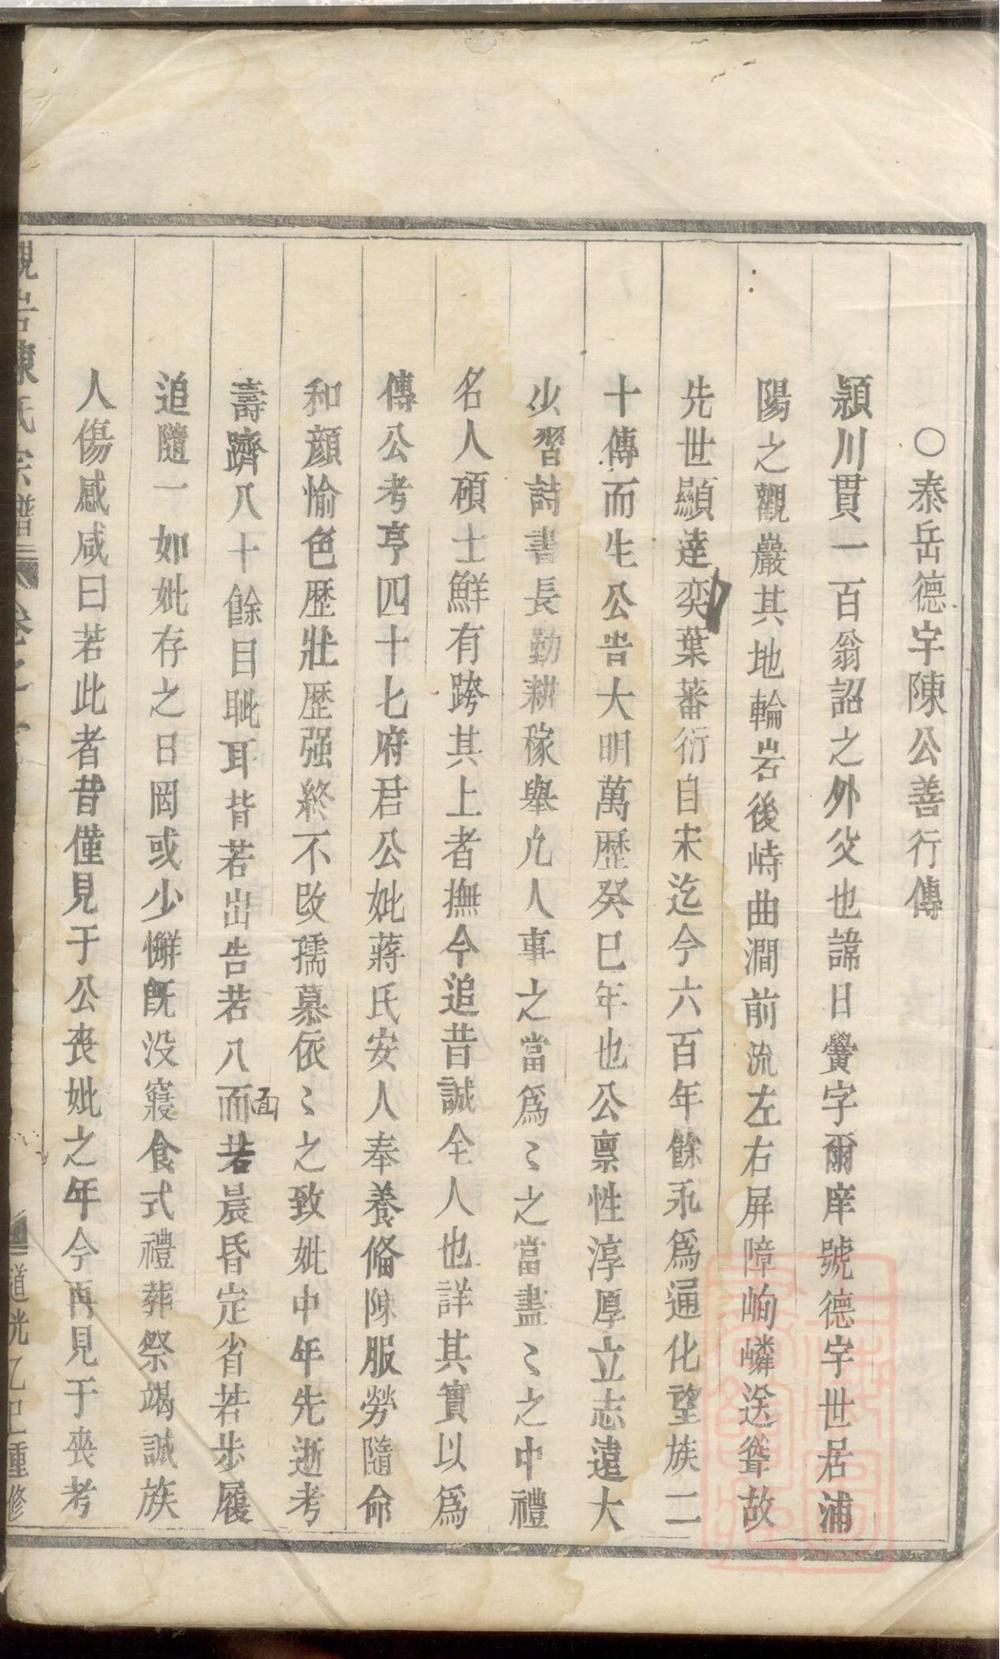 ○泰岳德宇陳公善行傳
潁川貫一百翁詔之外父也諱日黌字爾庠號德宇世居浦
陽之觀巖其地輪岩後峙曲澗前流左右屏障峋嶙送聳故
先世顯達奕葉蕃衍自宋迄今六百年餘永為通化望族二
十傳而生公告大明萬歷癸巳年也公禀性淳厚立志遠大
少習詩書長勤耕稼舉凢人事之當為〻之當盡〻之中禮
名人碩士鮮有跨其上者撫今追昔誠全人也詳其實以為
傳公考亨四十七府君公妣蔣氏安人奉養俻陳服勞隨命
和顔愉色歴壯歴强終不改孺慕依〻之致妣中年先逝考
壽躋八十餘目眦耳背若出告若入而面若晨昏定省若步履
追隨一如妣存之日罔或少懈旣没寢食式禮葬祭竭誠族
人傷感咸曰若此者昔僅見于公喪妣之年今再見于喪考
觀岩陳氏宗譜 卷之 道光乙巳重修